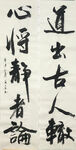 道出古人轍
心將靜者論